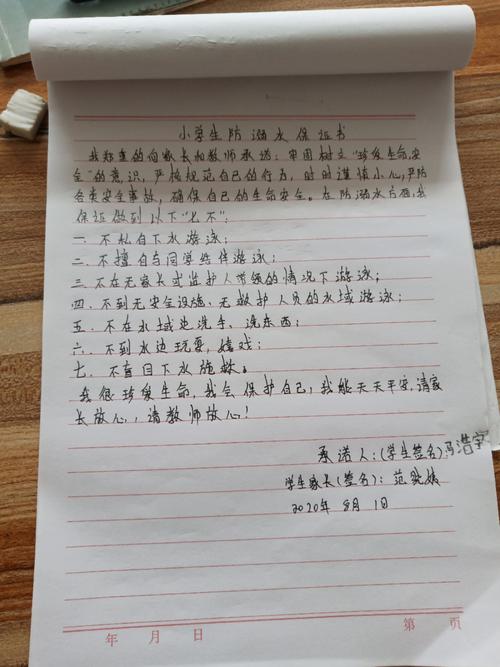 小学生防溺水保证书
我郑重的向家长和教师承诺：牢固树立“珍爱生命,安
全”的意识，严格规范自己的行为，时时谨慎小心,严防
各类安全事故，确保自己的生命安全。在防溺水方面,我
保证做到以下“七不”：
一、不私自下水游泳；
二、不擅自与同学结伴游泳；
三、不在无家长或监护人带领的情况下游泳；
四、不到无安全设施、无救护人员的水域游泳；
五、不在水域边洗手、洗东西；
六、不到水边玩耍，嬉戏；
七、不盲目下水施救。
我很珍爱生命，我会保护自己，我能天天平安,请家
长放心，请教师放心！
承诺人：(学生签名)冯浩宇
学生家长(签名)：范
2020年8月1日
年 月 日 第 页